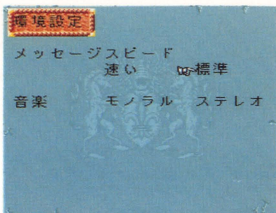 環境設定
メッセージスピード
速い 標準
音楽 モノラル ステレオ